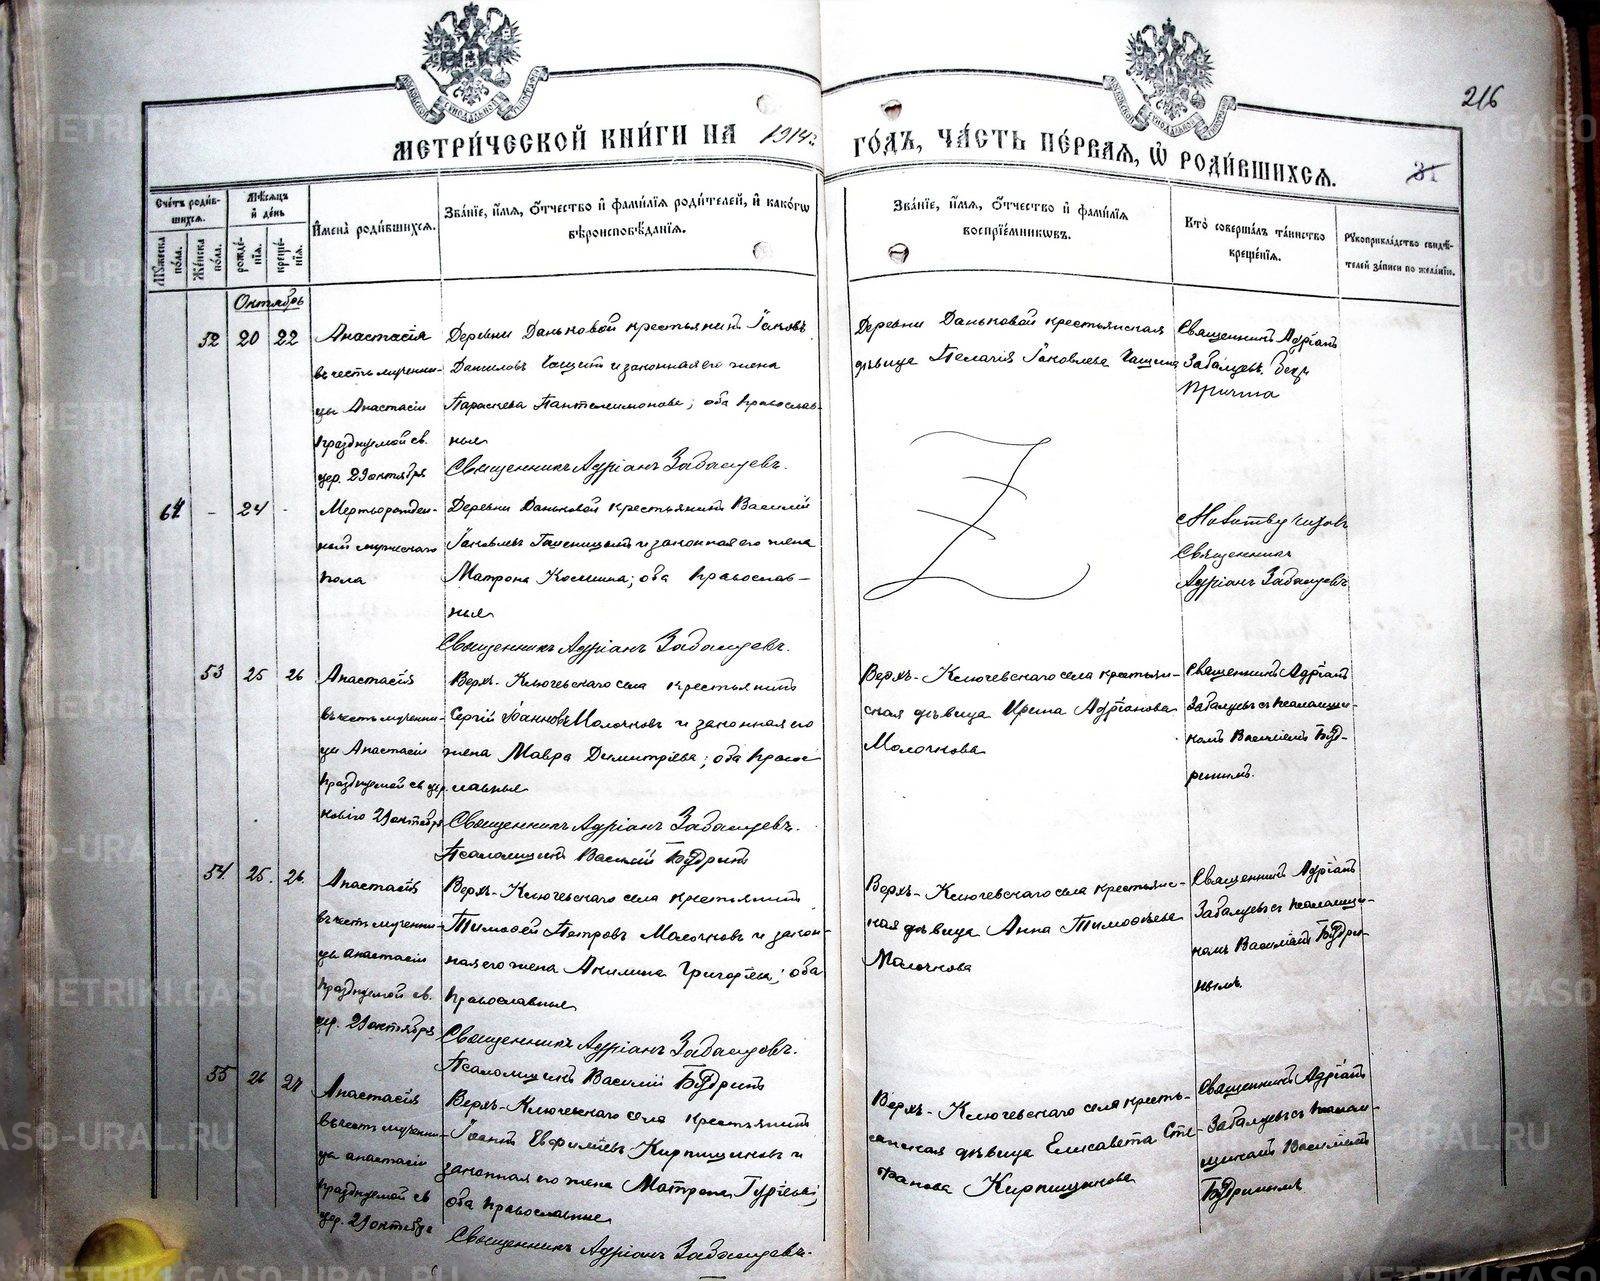 216
МЕТРИ́ЧЕСКОЙ КНИ́ГИ НА 1914
ГО́ДЪ, ЧА́СТЬ ПЕ́РВАЯ, Ѡ РОДИ́ВШИХСЯ.
31
Сче́тъ роди́в-
шихся.
Му́жеска
по́ла.
Же́нска
по́ла.
Мѣ́сяцъ
и де́нь
рожде́-
нія.
креще́-
нія.
Имена̀ роди́вшихся.
Зва́ніе, и́мя, о́тчество и фами́лія роди́телей, и како́гѡ
вѣроисповѣ́данія.
Зва́ніе, и́мя, о́тчество и фами́лія
воспріе́мниковъ.
Кто̀ соверша́лъ та́инство
креще́нія.
Рукоприкла́дство свидѣ́-
телей за́писи по жела́нію.
Октябрь
52 20 22
Анастасія
въ честь мучени-
цы Анастасіи
празднуемой св.
цер. 29 октября
Деревни Даньковой крестьянинъ Іаковъ
Даниловъ и законная его жена
Параскева Пантелеимонова; оба православ-
ные
Священникъ Адріанъ Забалуевъ.
Деревни Даньковой крестьянская
дѣвица Пелагія Іаковлева
Священникъ Адріанъ
Забалуевъ безъ
причта
64 - 24 -
Мертворожден-
ный мужескаго
пола
Деревни Даньковой крестьянинъ Василій
Іаковлевъ и законная его жена
Матрона Космина; оба православ-
ные
Священникъ Адріанъ Забалуевъ.
Молитву читалъ
Священникъ
Адріанъ Забалуевъ
53 25 26
Анастасія
въ честь мучени-
цы Анастасіи
празднуемой св цер.
29 октября
Верхъ-Ключевскаго села крестьянинъ
Сергій Іоанновъ Молочковъ и законная его
жена Мавра Димитріева; оба право-
славные
Священникъ Адріанъ Забалуевъ.
Псаломщикъ Василій Будринъ
Верхъ-Ключевскаго села крестьян-
ская дѣвица Ирина Адріанова
Молочкова
Священникъ Адріанъ
Забалуевъ съ псаломщи-
комъ Василіемъ Буд-
ринымъ.
54. 25. 26.
Анастасія
въ честь мучени-
цы анастасіи
празднуемой св.
цер. 29 октября
Верхъ-Ключевскаго села крестьянинъ
Тимофей Петровъ Молочковъ и закон-
ная его жена Акилина Григорьева; оба
православные
Священникъ Адріанъ Забалуевъ.
Псаломщикъ Василій Будринъ
Верхъ-Ключевскаго села крестьян-
ская дѣвица Анна Тимофеева
Молочкова
Священникъ Адріанъ
Забалуевъ съ псаломщи-
комъ Василіемъ Будри-
нымъ.
55 26 27
Анастасія
въ честь мучени-
цы анастасіи
празднуемой св
цер. 29 октября
Верхъ-Ключевскаго села крестьянинъ
Іоаннъ Евфиміевъ Кирпищиковъ и
законная его жена Матрона Гурьева;
оба православные
Священникъ Адріанъ Забалуевъ.
Верхъ-Ключевскаго села кресть-
янская дѣвица Елисавета Сте-
фанова Кирпищикова
Священникъ Адріанъ
Забалуевъ съ псалом-
щикомъ Василіемъ
Будринымъ
METRIKI.GASO-URAL.RU